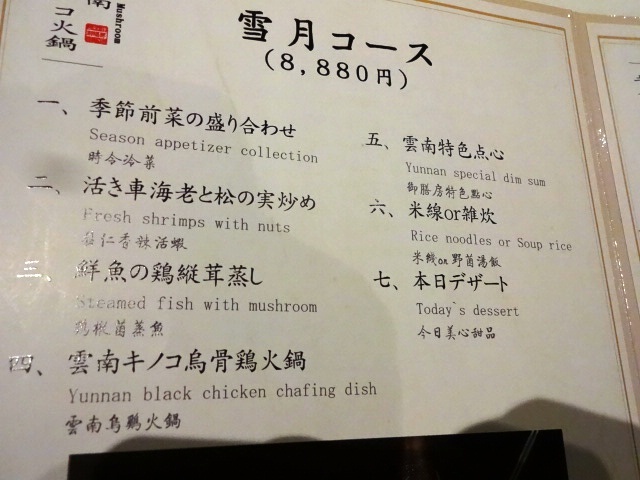 南
コ火鍋
Mushroom
雪月コース
(8,880円)
一、季節前菜の盛り合わせ
Season appetizer collection
時令冷菜
二、活き車海老と松の実炒め
Fresh shrimps with nuts
仁香辣活蝦
三、鮮魚の鶏縦茸蒸し
Steamed fish with mushroom
菌蒸魚
四、雲南キノコ烏骨鶏火鍋
Yunnan black chicken chafing dish
雲南烏鷄火鍋
五、雲南特色点心
Yunnan special dim sum
御膳房特色點心
六、米線or雑炊
Rice noodles or Soup rice
米线or野菌湯飯
七、本日デザート
Today`s dessert
今日美心甜品